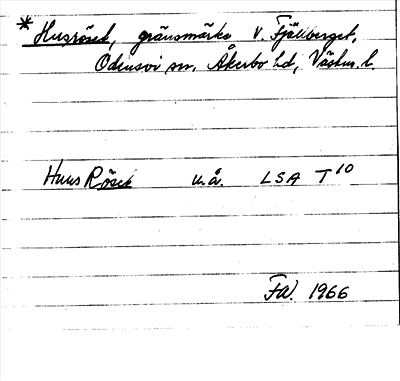 * Husröset, gränsmärke v. Fjällberget,
Odensvi sn, Åkerbo hd, Västm. l.
Huus Röset u.å. LSA T10
FW. 1966